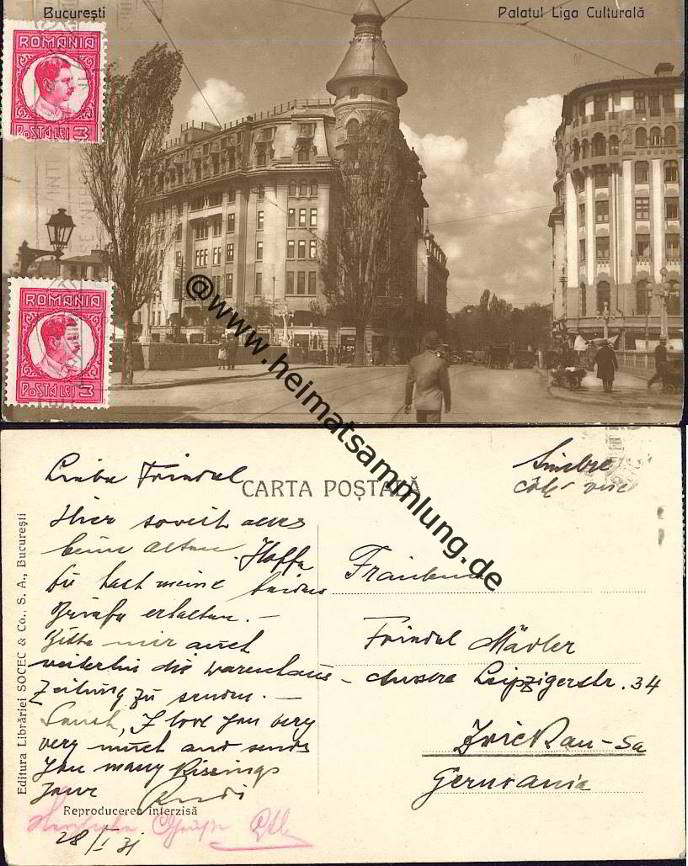 București
Palatul Liga Culturală
ROMANIA
POSTA LEI 3
ROMANIA
POSTA LEI 3
@www.heimatsammlung.de
CARTA POȘTALĂ
Timbre
côté vue
Liebe Friedel
Hier soweit alles
beim alten. Hoffe
Du hast meine beiden
Briefe erhalten. —
Bitte mir auch
weiterhin die Warenhaus-
Zeitung zu senden. —
I love you very
very much and sends
you many kissings
Your Rudi
28/I 31
Fräulein
Friedel Mädler
Äussere Leipzigerstr. 34
Zwickau-Sa
Germania
Editura Librăriei SOCEC & Co., S. A., București
Reproducerea interzisă